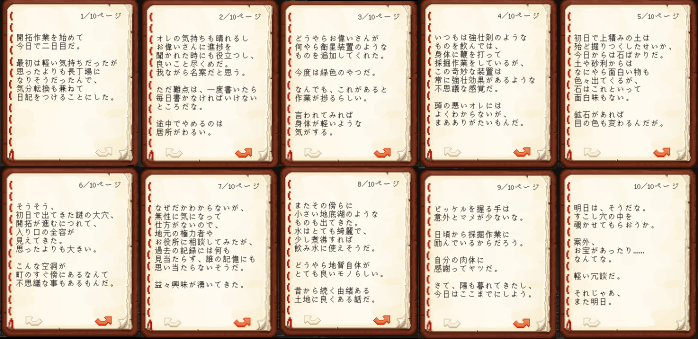 1/10ページ
開拓作業を始めて
今日で二日目だ。
最初は軽い気持ちだったが
思ったよりも長丁場に
なりそうだったんで、
気分転換も兼ねて
日記をつけることにした。
2/10ページ
オレの気持ちも晴れるし
お偉いさんに進捗を
聞かれた時にも役立つし、
良いこと尽くめだ。
我ながら名案だと思う。
ただ難点は、一度書いたら
毎日書かなければいけない
ところだな。
途中でやめるのは
居所がわるい。
3/10ページ
どうやらお偉いさんが
何やら衛星装置のような
ものを追加してくれた。
今度は緑色のやつだ。
なんでも、これがあると
作業が捗るらしい。
言われてみれば
身体が軽いような
気がする。
4/10ページ
いつもは強壮剤のような
ものを飲んでは、
身体に鞭を打って
採掘作業をしているが、
この奇妙な装置は
常に強壮効果があるような
不思議な感覚だ。
頭の悪いオレには
よくわからないが、
まあありがたいもんだ。
5/10ページ
初日で上積みの土は
殆ど掘りつくしたせいか、
今日からは石ばかりだ。
土や砂利からは
なにやら面白い物も
色々出てくるが、
石はこれといって
面白味もない。
鉱石があれば
目の色も変わるんだがな。
6/10ページ
そうそう、
初日で出てきた謎の大穴、
開拓が進むにつれて、
入り口の全容が
見えてきた。
思ったよりも大きい。
こんな空洞が
町のすぐ傍にあるなんて
不思議な事もあるもんだ。
7/10ページ
なぜだかわからないが、
無性に気になって
仕方がないので、
地元の権力者や
お役所に相談してみたが、
過去の記録には何も
見当たらず、誰の記憶にも
思い当たらないそうだ。
益々興味が湧いてきた。
8/10ページ
またその傍らに
小さい地底湖のような
ものも出てきた。
水はとても綺麗で、
少し煮沸すれば
飲み水に使えそうだ。
どうやら地質自体が
とても良いモノらしい。
昔から続く由緒ある
土地に良くある話だ。
9/10ページ
ピッケルを握る手は
意外とマメが少ないな。
日頃から採掘作業に
励んでいるからだろう。
自分の肉体に
感謝ってヤツだ。
さて、陽も暮れてきたし、
今日はここまでにしよう。
10/10ページ
明日は、そうだな。
すこし穴の中を
覗かせてもらおうか。
案外、
お宝があったり……
なんてな。
軽い冗談だ。
それじゃあ、
また明日。